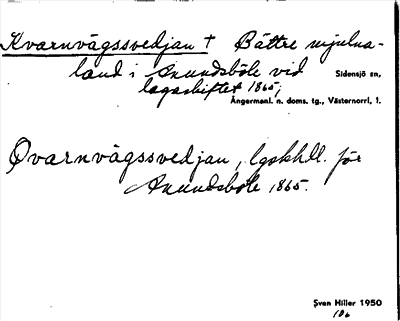 Kvarnvägssvedjan † Bättre mjulna-
land i Anundsböle vid Sidensjö sn,
lagaskiftet 1865,
Ångermanl. n. doms. tg., Västernorrl. l.
Qvarnvägssvedjan, lgskhll. för
Anundsböle 1865.
Sven Hiller 1950
106